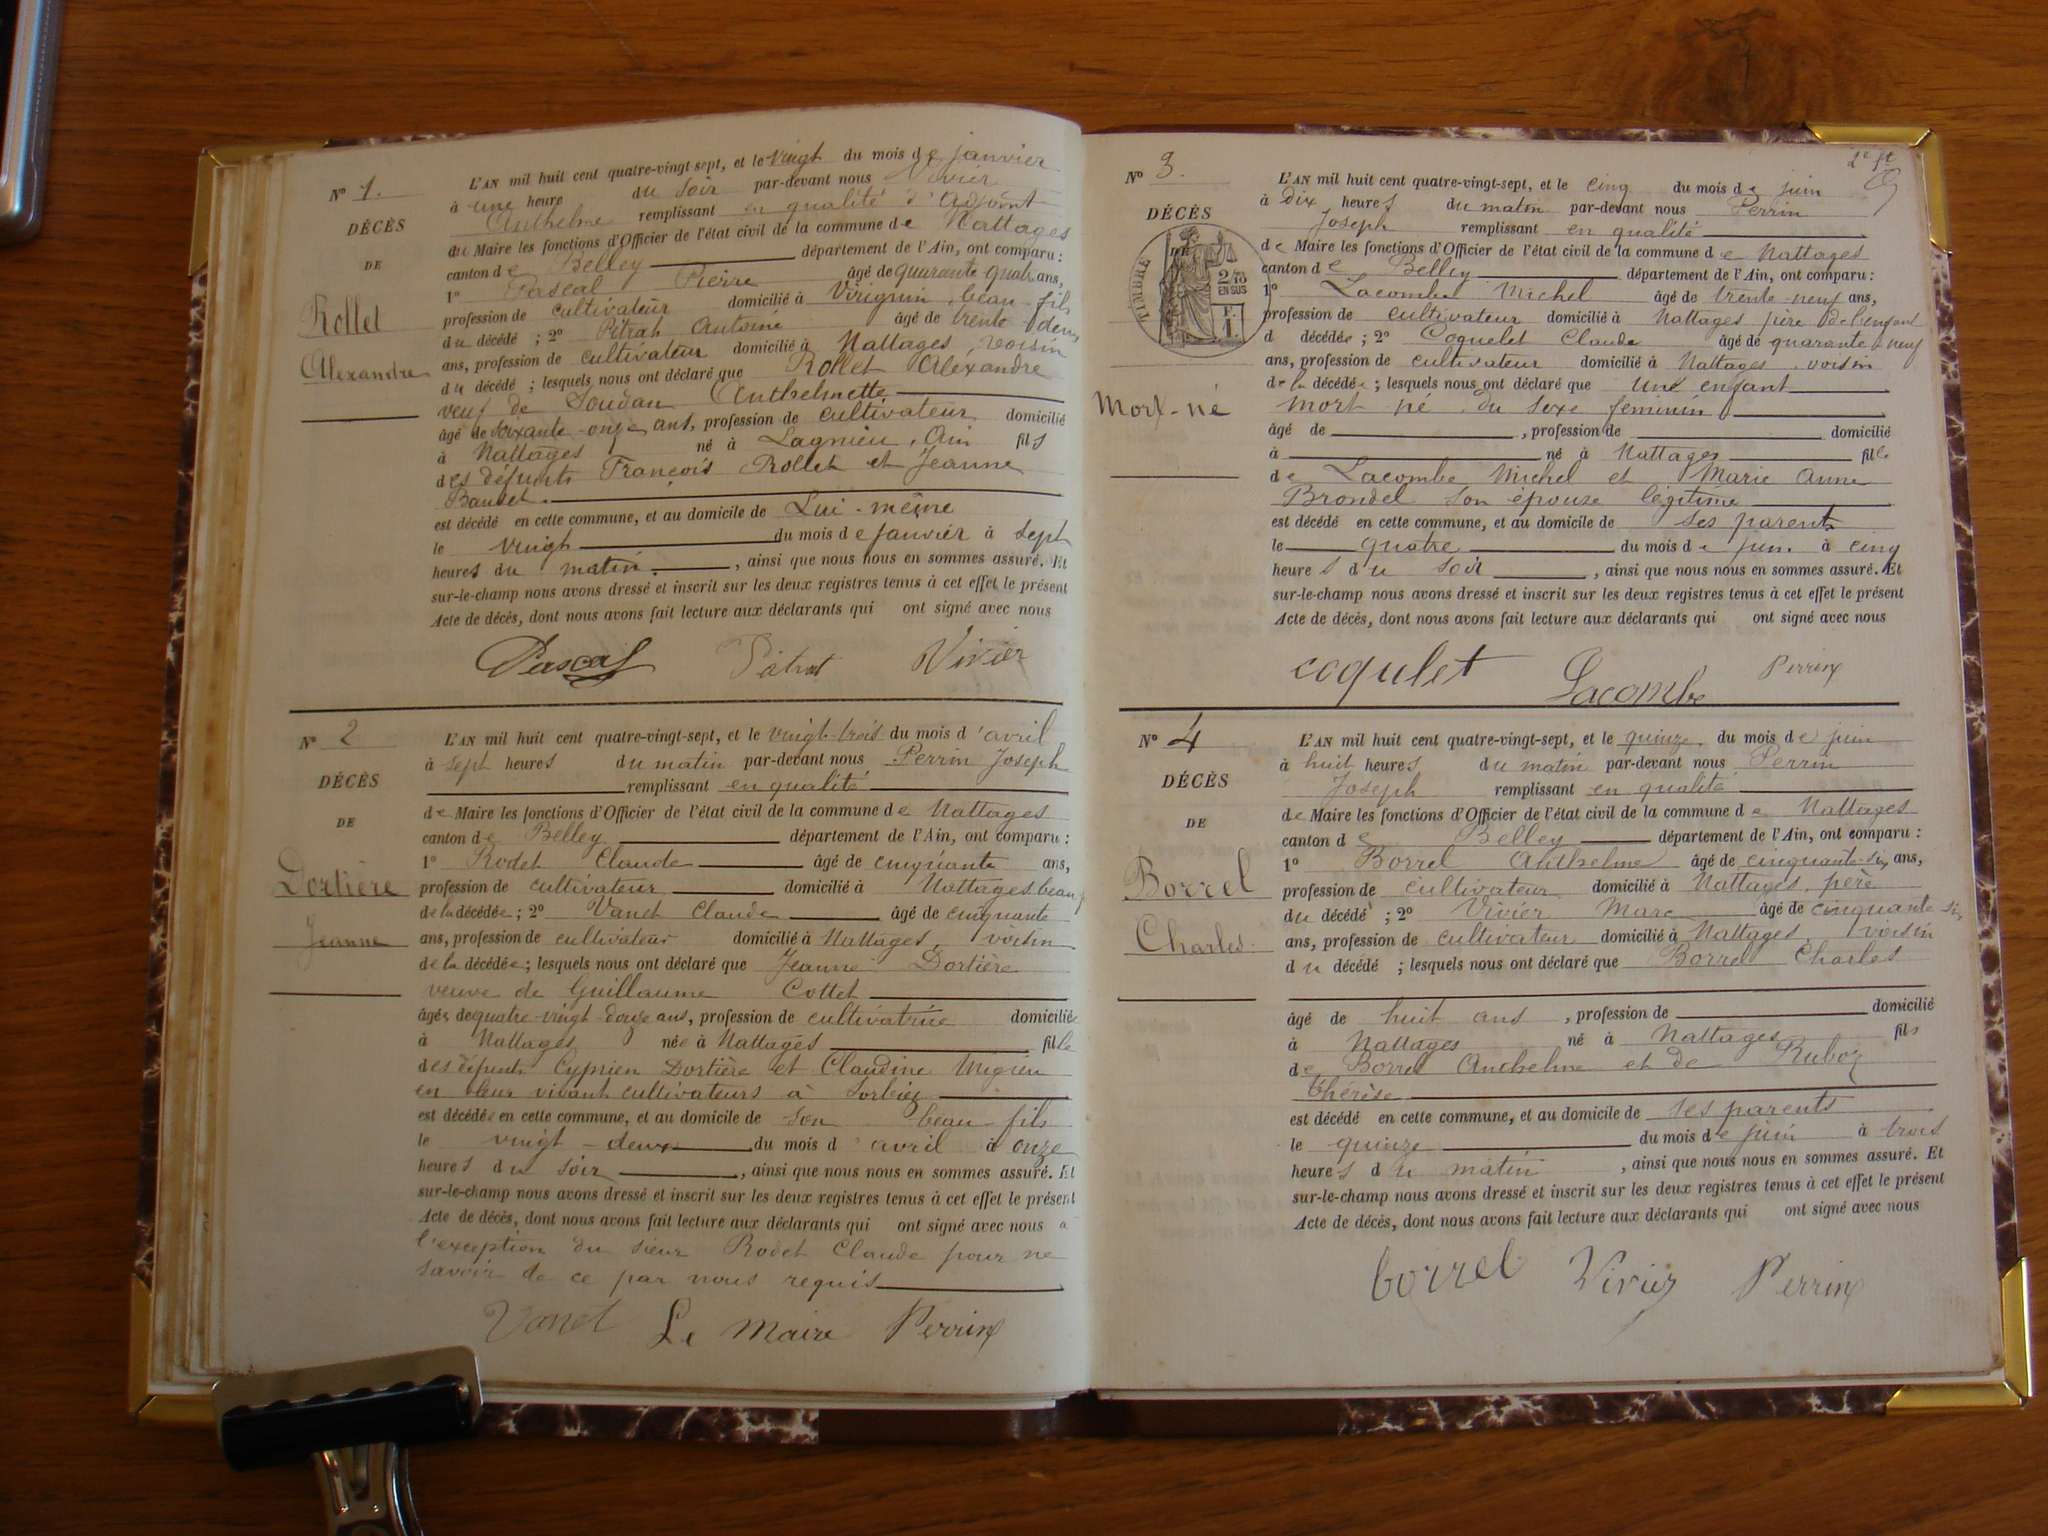 N° 1.
DÉCÈS
DE
Rollet
Alexandre
L'AN mil huit cent quatre-vingt-sept, et le vingt du mois de janvier
à une heure du soir par-devant nous Vivier
Anthelme remplissant en qualité d'adjoint
du Maire les fonctions d'Officier de l'état civil de la commune de Nattages
canton de Belley département de l'Ain, ont comparu :
1° Pascal Pierre âgé de quarante quatre ans,
profession de cultivateur domicilié à Virignin, beau-fils
du décédé ; 2° Pétrat Antoine âgé de trente deux
ans, profession de cultivateur domicilié à Nattages, voisin
du décédé ; lesquels nous ont déclaré que Rollet Alexandre
veuf de Soudan Anthelmette
âgé de soixante-onze ans, profession de cultivateur domicilié
à Nattages né à Lagnieu, Ain fils
des défunts François Rollet et Jeanne
Baudet.
est décédé en cette commune, et au domicile de Lui-même
le vingt du mois de janvier à sept
heures du matin, ainsi que nous nous en sommes assuré. Et
sur-le-champ nous avons dressé et inscrit sur les deux registres tenus à cet effet le présent
Acte de décès, dont nous avons fait lecture aux déclarants qui ont signé avec nous
Pascal Pétrat Vivier
N° 2
DÉCÈS
DE
Dortière
Jeanne
L'AN mil huit cent quatre-vingt-sept, et le vingt-trois du mois d'avril
à sept heures du matin par-devant nous Perrin Joseph
remplissant en qualité
de Maire les fonctions d'Officier de l'état civil de la commune de Nattages
canton de Belley département de l'Ain, ont comparu :
1° Rodet Claude âgé de cinquante ans,
profession de cultivateur domicilié à Nattages beau f
de la décédée ; 2° Vanet Claude âgé de cinquante
ans, profession de cultivateur domicilié à Nattages, voisin
de la décédée ; lesquels nous ont déclaré que Jeanne Dortière
veuve de Guillaume Cottet
âgée de quatre-vingt-douze ans, profession de cultivatrice domiciliée
à Nattages née à Nattages fille
des défunts Cyprien Dortière et Claudine Migieu
en leur vivant cultivateurs à Sorbier
est décédée en cette commune, et au domicile de son beau-fils
le vingt-deux du mois d'avril à onze
heures du soir, ainsi que nous nous en sommes assuré. Et
sur-le-champ nous avons dressé et inscrit sur les deux registres tenus à cet effet le présent
Acte de décès, dont nous avons fait lecture aux déclarants qui ont signé avec nous à
l'exception du sieur Rodet Claude pour ne
savoir de ce par nous requis
Vanet Le Maire Perrin
2e ft
N° 3.
DÉCÈS
DE
TIMBRE
2/10
EN SUS
Mort-né
L'AN mil huit cent quatre-vingt-sept, et le cinq du mois de juin
à dix heures du matin par-devant nous Perrin
Joseph remplissant en qualité
de Maire les fonctions d'Officier de l'état civil de la commune de Nattages
canton de Belley département de l'Ain, ont comparu :
1° Lacombe Michel âgé de trente-neuf ans,
profession de cultivateur domicilié à Nattages père de l'enfant
d décédée ; 2° Coquelet Claude âgé de quarante-neuf
ans, profession de cultivateur domicilié à Nattages, voisin
de la décédée ; lesquels nous ont déclaré que une enfant
mort né du sexe féminin
âgé de , profession de domicilié
à né à Nattages fille
de Lacombe Michel et Marie Anne
Brondel son épouse légitime
est décédé en cette commune, et au domicile de ses parents
le quatre du mois de juin à cinq
heures du soir, ainsi que nous nous en sommes assuré. Et
sur-le-champ nous avons dressé et inscrit sur les deux registres tenus à cet effet le présent
Acte de décès, dont nous avons fait lecture aux déclarants qui ont signé avec nous
coqulet Lacombe Perrin
N° 4
DÉCÈS
DE
Borrel
Charles.
L'AN mil huit cent quatre-vingt-sept, et le quinze du mois de juin
à huit heures du matin par-devant nous Perrin
Joseph remplissant en qualité
de Maire les fonctions d'Officier de l'état civil de la commune de Nattages
canton de Belley département de l'Ain, ont comparu :
1° Borrel Anthelme âgé de cinquante-six ans,
profession de cultivateur domicilié à Nattages, père
du décédé ; 2° Vivier Marc âgé de cinquante six
ans, profession de cultivateur domicilié à Nattages, voisin
du décédé ; lesquels nous ont déclaré que Borrel Charles
âgé de huit ans, profession de domicilié
à Nattages né à Nattages fils
de Borrel Anthelme et de Ruboz
Thérèse
est décédé en cette commune, et au domicile de ses parents
le quinze du mois de juin à trois
heures du matin, ainsi que nous nous en sommes assuré. Et
sur-le-champ nous avons dressé et inscrit sur les deux registres tenus à cet effet le présent
Acte de décès, dont nous avons fait lecture aux déclarants qui ont signé avec nous
borrel Vivier Perrin